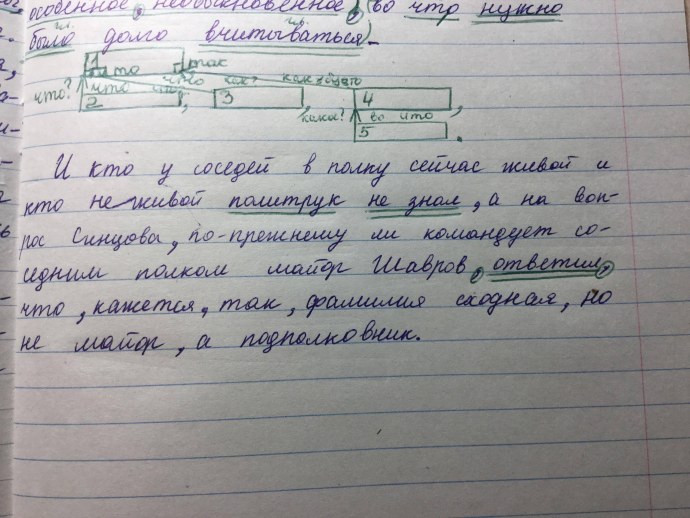 особенное, необыкновенное, во что нужно
было долго вчитываться.
1
что так
что? что как? как будто
2, 3, 4,
какое? во что
5.
И кто у соседей в полку сейчас живой и
кто не живой политрук не знал, а на воп-
рос Синцова, по-прежнему ли командует со-
седним полком майор Шавров, ответил,
что, кажется, так, фамилия сходная, но
не майор, а подполковник.